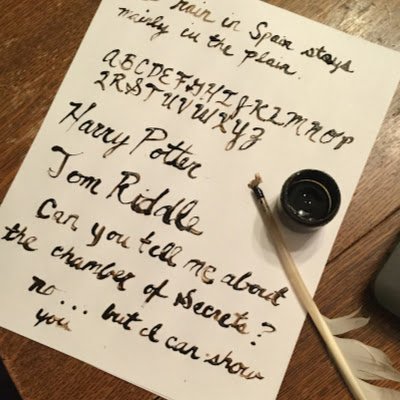 rain in Spain stays
mainly in the plain.
ABCDEFGHIJKLMNOP
QRSTUVWXYZ
Harry Potter
Tom Riddle
Can you tell me about
the chamber of Secrets?
no... but I can show
you